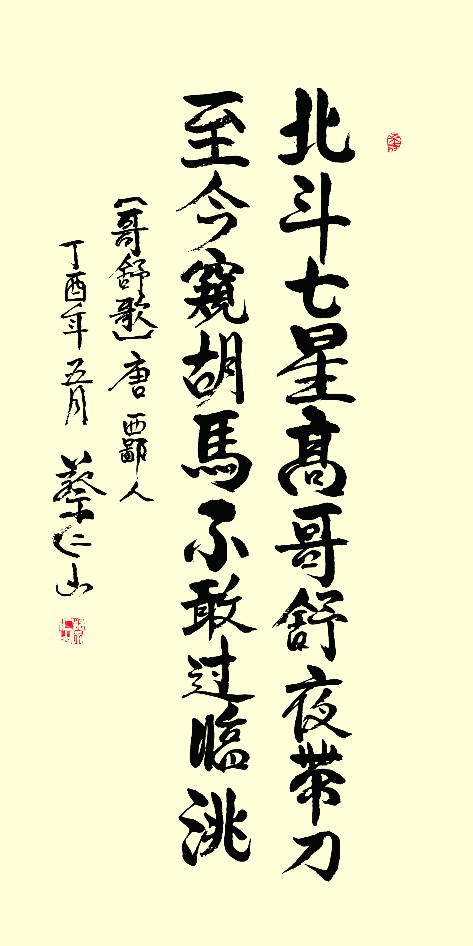 北斗七星高哥舒夜带刀
至今窥胡馬不敢过臨洮
〔哥舒歌〕唐 西鄙人
丁酉年五月 蔡仁山